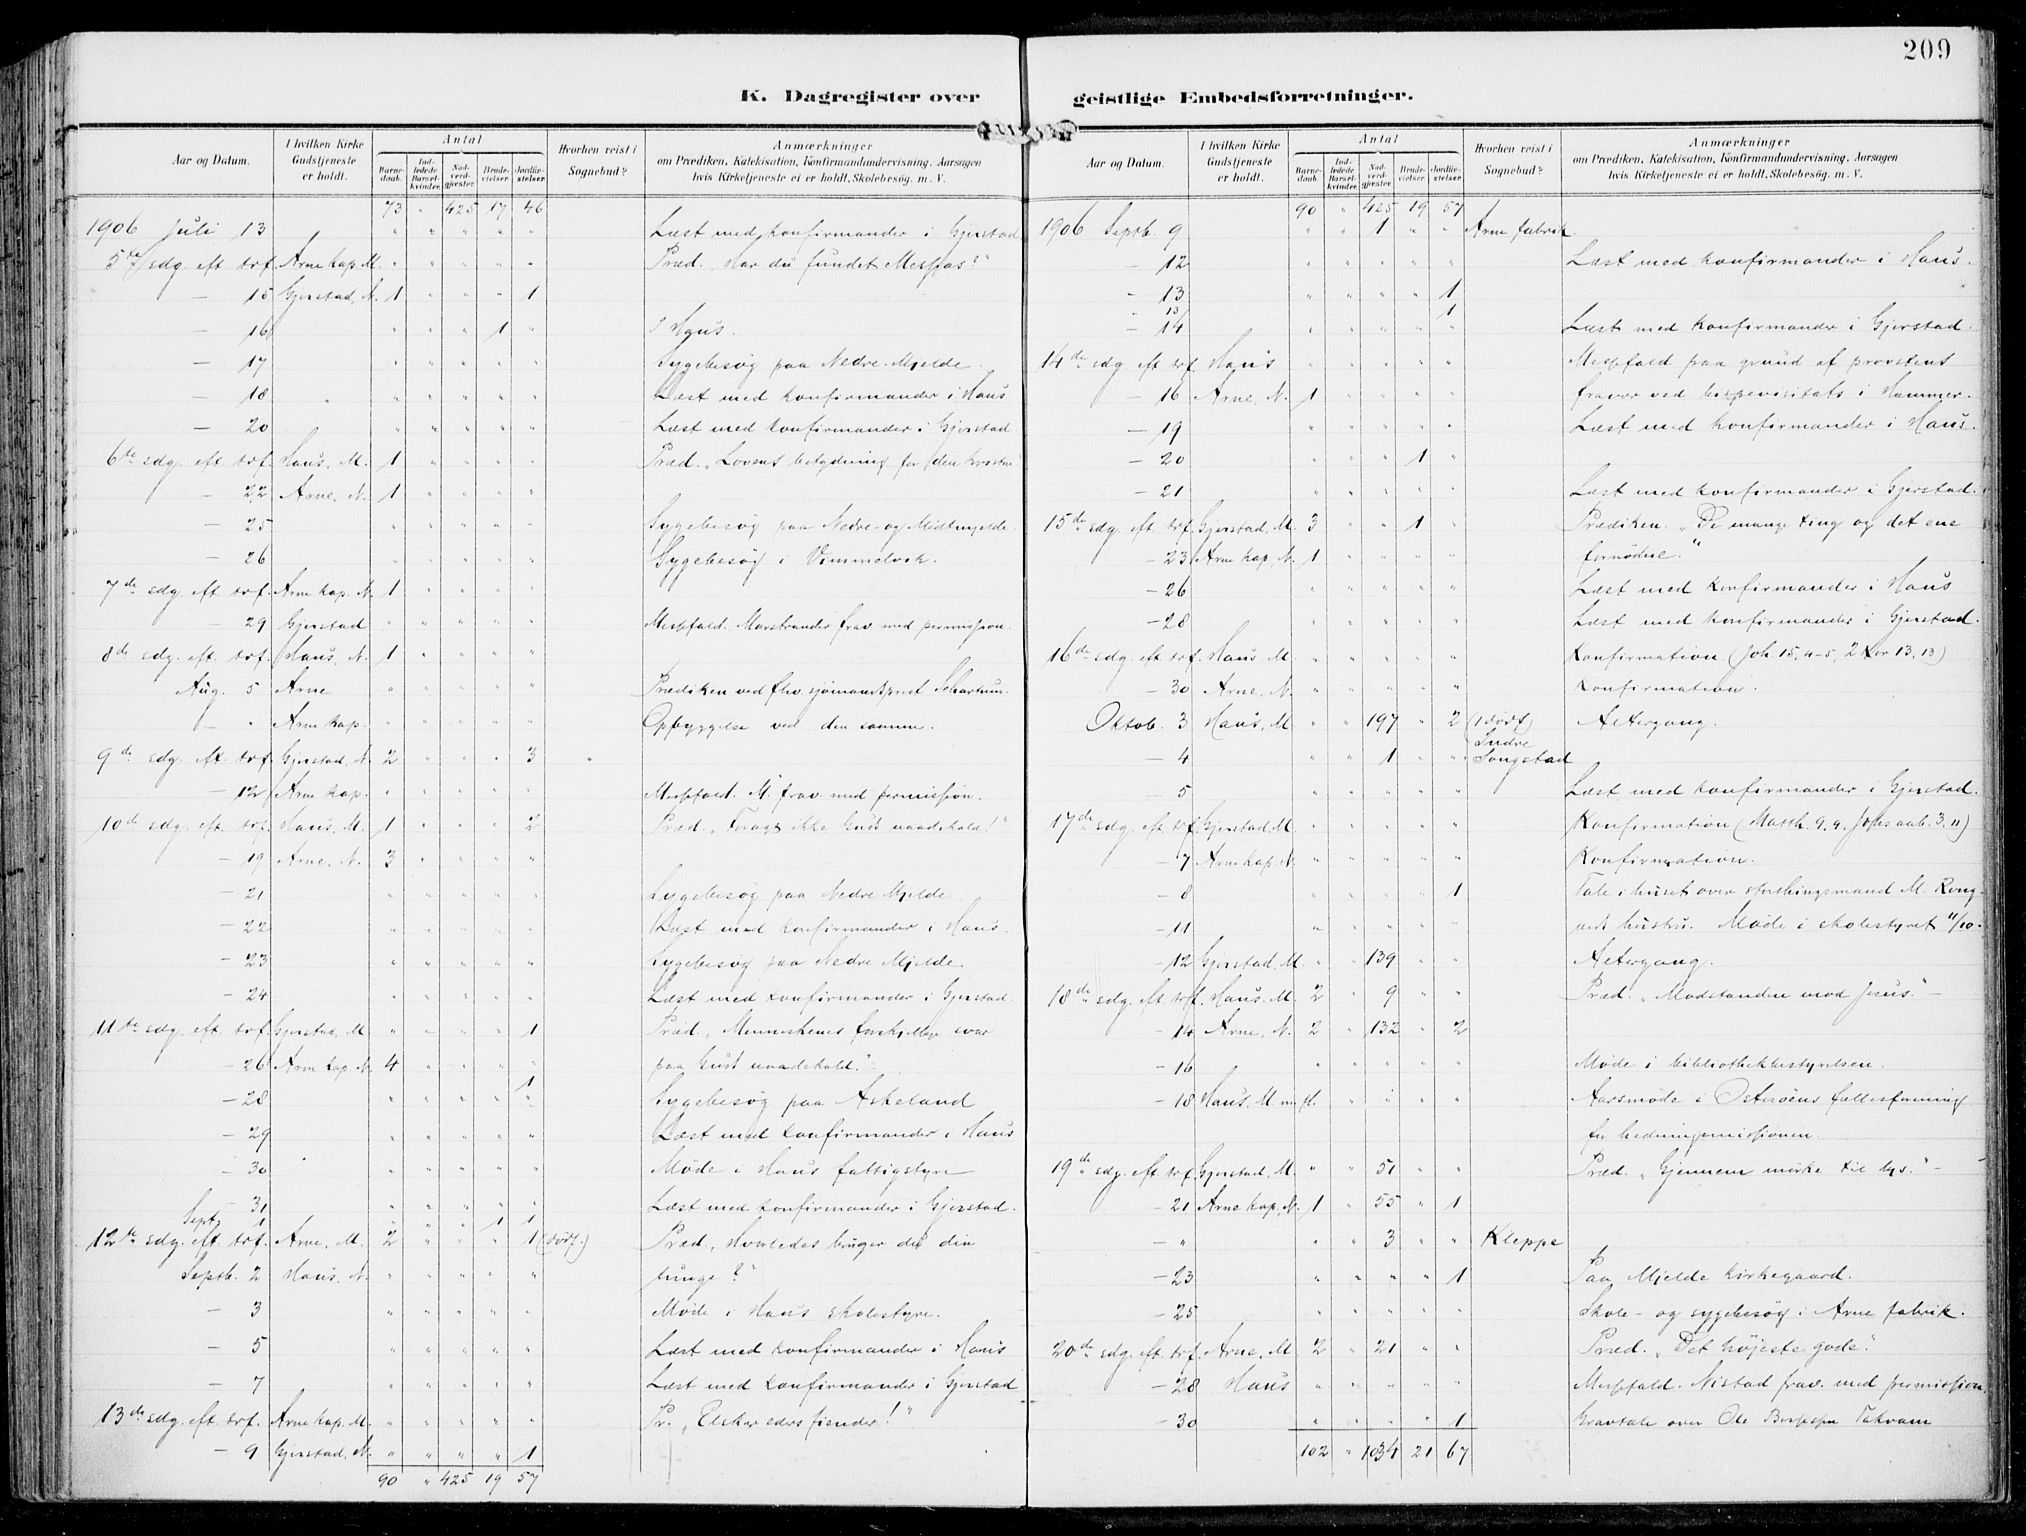 209
K. Dagregister over geistlige Embedsforretninger.
Aar og Datum. I hvilken Kirke Gudstjeneste er holdt. Antal Barnedaab. Indledede Barselkvinder. Nadverdgjester. Brudevielser. Jordfæstelser. Hvorhen reist i Sognebud? Anmærkninger om Prædiken, Katekisation, Konfirmandundervisning, Aarsagen hvis Kirketjeneste ei er holdt, Skolebesøg. m. V.
73 " 425 17 46
1906 Juli 13 " " " " " Læst med konfirmander i Gjerstad
5te sdg. eft. trf. Arne kap. M. " " " " " Præd. „Har du fundet Messias?"
— 15 Gjerstad, N. 1 " " " 1
— 16 " " " 1 " I Haus.
— 17 " " " " " Sygebesøg paa Nedre Mjelde.
— 18 " " " " " Læst med konfirmander i Haus
— 20 " " " " " Læst med konfirmander i Gjerstad
6te sdg. eft. trf. Haus, M. 1 " " " " Præd. „Lovens betydning for den kristne"
— 22 Arne, N. 1 " " " "
— 25 " " " " " Sygebesøg paa Nedre- og Midtmjelde.
— 26 " " " " " Sygebesøg i Vimmelvik.
7de sdg. eft. trf. Arne kap. N. 1 " " " "
— 29 Gjerstad " " " " " Messefald. Marstrander frav. med permission.
8de sdg. eft. trf. Haus, N. 1 " " " "
Aug. 5 Arne " " " " " Prædiken ved fhv. sjømandsprest Schartum.
— " Arne kap. " " " " " Opbyggelse ved den samme.
9de sdg. eft. trf. Gjerstad, N. 2 " " " 3
— 12 Arne kap. " " " " " Messefald. M. frav. med permission.
10de sdg. eft. trf. Haus, M. 1 " " " 2 Præd. „Foragt ikke Guds naadekald!"
— 19 Arne, N. 3 " " " "
— 21 " " " " " Sygebesøg paa Nedre Mjelde
— 22 " " " " " Læst med konfirmander i Haus.
— 23 " " " " " Sygebesøg paa Nedre Mjelde.
— 24 " " " " " Læst med konfirmander i Gjerstad.
11te sdg. eft. trf. Gjerstad, M " " " " 1 Præd. „Menneskenes forskjellige svar
— 26 Arne kap. N. 4 " " " " paa Guds naadekald."
1
— 28 " " " " " Sygebesøg paa Askeland
— 29 " " " " " Læst med konfirmander i Haus
— 30 " " " " " Møde i Haus fattigstyre
— 31 " " " " " Læst med konfirmander i Gjerstad.
Sept. 1 " " " 1 1
12te sdg. eft. trf. Arne, M. 2 " " " 1 (dødf.) Præd. „Hvorledes bruger du din
Septb. 2 Haus, N. " " " " " tunge?"
— 3 " " " " " Møde i Haus skolestyre.
— 5 " " " " " Læst med konfirmander i Haus
— 7 " " " " " Læst med konfirmander i Gjerstad
13de sdg. eft. trf. Arne kap. M. " " " " " Pr. „Elsker eders fiender!"
— 9 Gjerstad, N. " " " " 1
90 " 425 19 57
Aar og Datum. I hvilken Kirke Gudstjeneste er holdt. Antal Barnedaab. Indledede Barselkvinder. Nadverdgjester. Brudevielser. Jordfæstelser. Hvorhen reist i Sognebud? Anmærkninger om Prædiken, Katekisation, Konfirmandundervisning, Aarsagen hvis Kirketjeneste ei er holdt, Skolebesøg. m. V.
90 " 425 19 57
1906 Septb. 9 " " 1 " " Arne fabrik.
— 12 " " " " " Læst med konfirmander i Haus.
— 13 " " " " 1
" 13 1
— 14 " " " " " Læst med konfirmander i Gjerstad.
14de sdg. eft. trf. Haus " " " " " Messefald paa grund af provstens
— 16 Arne, N. 1 " " " " fravær ved bispevisitats i Hammer.
— 19 " " " " " Læst med konfirmander i Haus.
— 20 " " " 1 "
— 21 " " " " " Læst med konfirmander i Gjerstad.
15de sdg. eft. trf. Gjerstad, M. 3 " " 1 " Prædiken. „De mange ting og det ene
— 23 Arne kap. N. 1 " " " " fornødne."
— 26 " " " " " Læst med konfirmander i Haus
— 28 " " " " " Læst med konfirmander i Gjerstad.
16de sdg. eft. trf. Haus. M " " " " " Konfirmation (Joh. 15, 4-5, 2 Kor 13, 13)
— 30 Arne, N. " " " " " Konfirmation.
Oktob. 3 Haus, M " " 197 " 2 (1 dødf) Altergang.
— 4 " " 1 " " Indre Songstad
— 5 " " " " " Læst med konfirmander i Gjerstad.
17de sdg. eft. trf. Gjerstad M. " " " " " Konfirmation (Matth. 9, 9. Johs aab. 3, 11)
— 7 Arne kap. N. " " " " " Konfirmation.
— 8 " " " " 1 Tale i huset over storthingsmand M. Rong-
— 11 " " " " " ved hustru. Møde i skolestyret 11/10.
— 12 Gjerstad, M. " " 139 " " Altergang.
18de sdg. eft. trf. Haus. M. 2 " 9 " " Præd. „Modstanden mod Jesus." —
— 14 Arne, N. 2 " 132 " 2
— 16 " " " " " Møde i bibliothekbestyrelsen.
— 18 Haus, M. m. fl. " " " " Aarsmøde i Osterøens fællesforening
for hedningemissionen.
19de sdg. eft. trf. Gjerstad, M. " " 51 " " Præd. „Gjennem mørke til lys." —
— 21 Arne kap., N. 1 " 55 " 1
— " " " 3 " " Kleppe
— 23 " " " " 1 Paa Mjelde kirkegaard.
— 25 " " " " " Skole- og sygebesøg i Arne fabrik.
20de sdg. eft. trf. Arne, M 2 " 21 " " Præd. „Det højeste gode."
— 28 Haus " " " " " Messefald. Nistad frav. med permission.
— 30 " " " " 1 Gravtale over Ole Takvam
102 " 1034 21 67